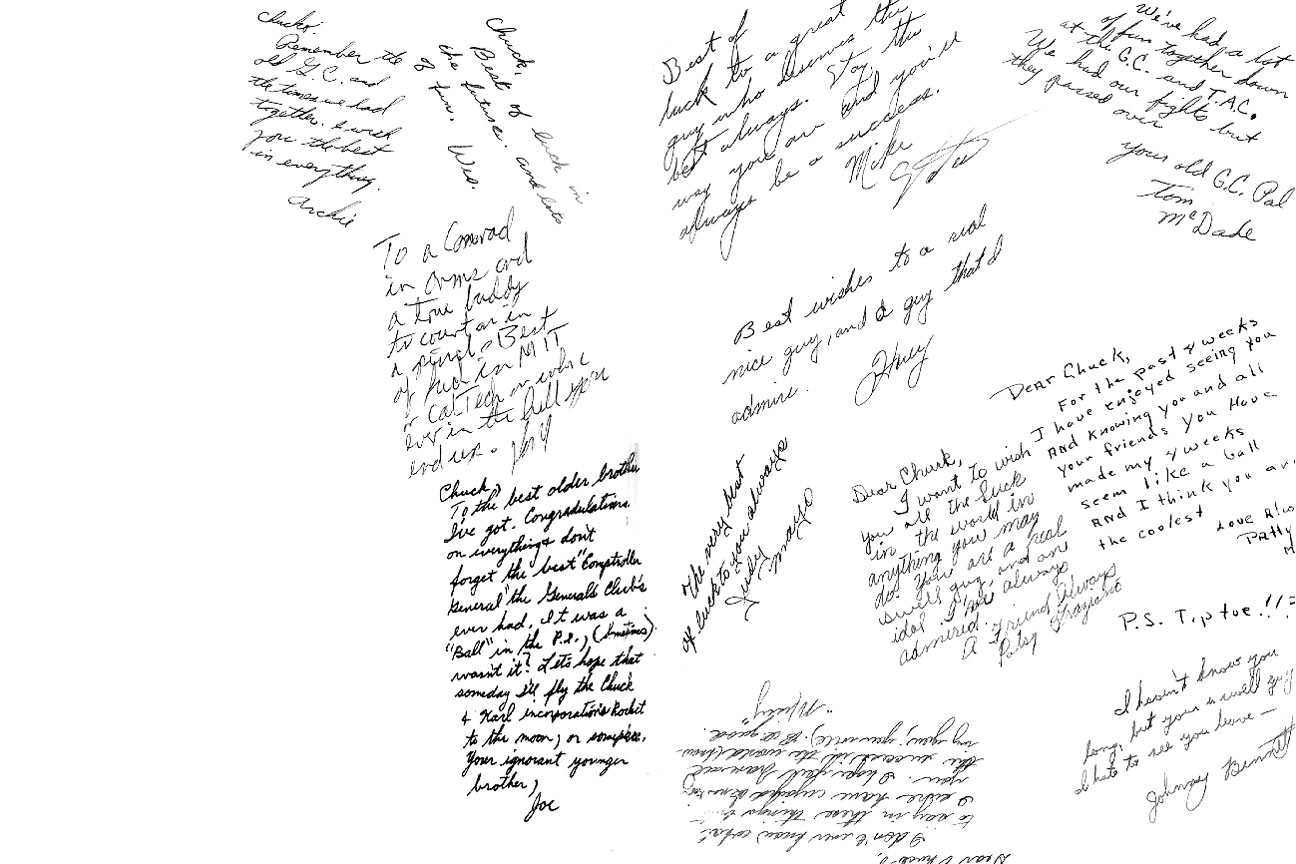 Chucko,
Remember the
old G.C. and
the times we had
together. I wish
you the best
in everything.
Archie
Chuck,
Best of luck in
the future. and lots
of fun. Wes.
To a Comrad
in Arms and
a True buddy
to count on in
a pinch. Best
of luck in MIT
or CalTech or where
ever in the hell you
end up.
Chuck,
To the best older brother
I've got. Congradulations
on everything & don't
forget the best "Comptroller
General" the Generals Club's
ever had. It was a
"Ball" in the P.I., (Sometimes)
wasn't it? Let's hope that
someday I'll fly the Chuck
& Karl incorporations Rocket
to the moon, or someplace.
Your ignorant younger
brother,
Joe
Best of
luck to a great
guy who deserves the
best always. Stay the
way you are and you'll
always be a success.
Mike
We've had a lot
of fun together down
at the G.C. and T.A.C.
We had our fights but
they passed over
your old G.C. Pal
Tom
McDade
Best wishes to a real
nice guy, and a guy that I
admire.
Huey
The very best
of luck to you always
Judy
Mayo
Dear Chuck,
I want to wish
you all the luck
in the world in
anything you may
do. You are a real
swell guy, and an
idol I've always
admired.
A Friend Always
Patsy Graziano
Dear Chuck,
For the past 4 weeks
I have enjoyed seeing you
and knowing you and all
your friends you have
made my 4 weeks
seem like a ball
and I think you are
the coolest
Love Always
Patty
P.S. Tip toe!!
I haven't known you
long, but your a swell guy
I hate to see you leave —
Johnny Bennett
Dear Chuck,
I don't ever know what
to say in these things but
I sure have enjoyed knowing
you. I hope you have all
the success in the world